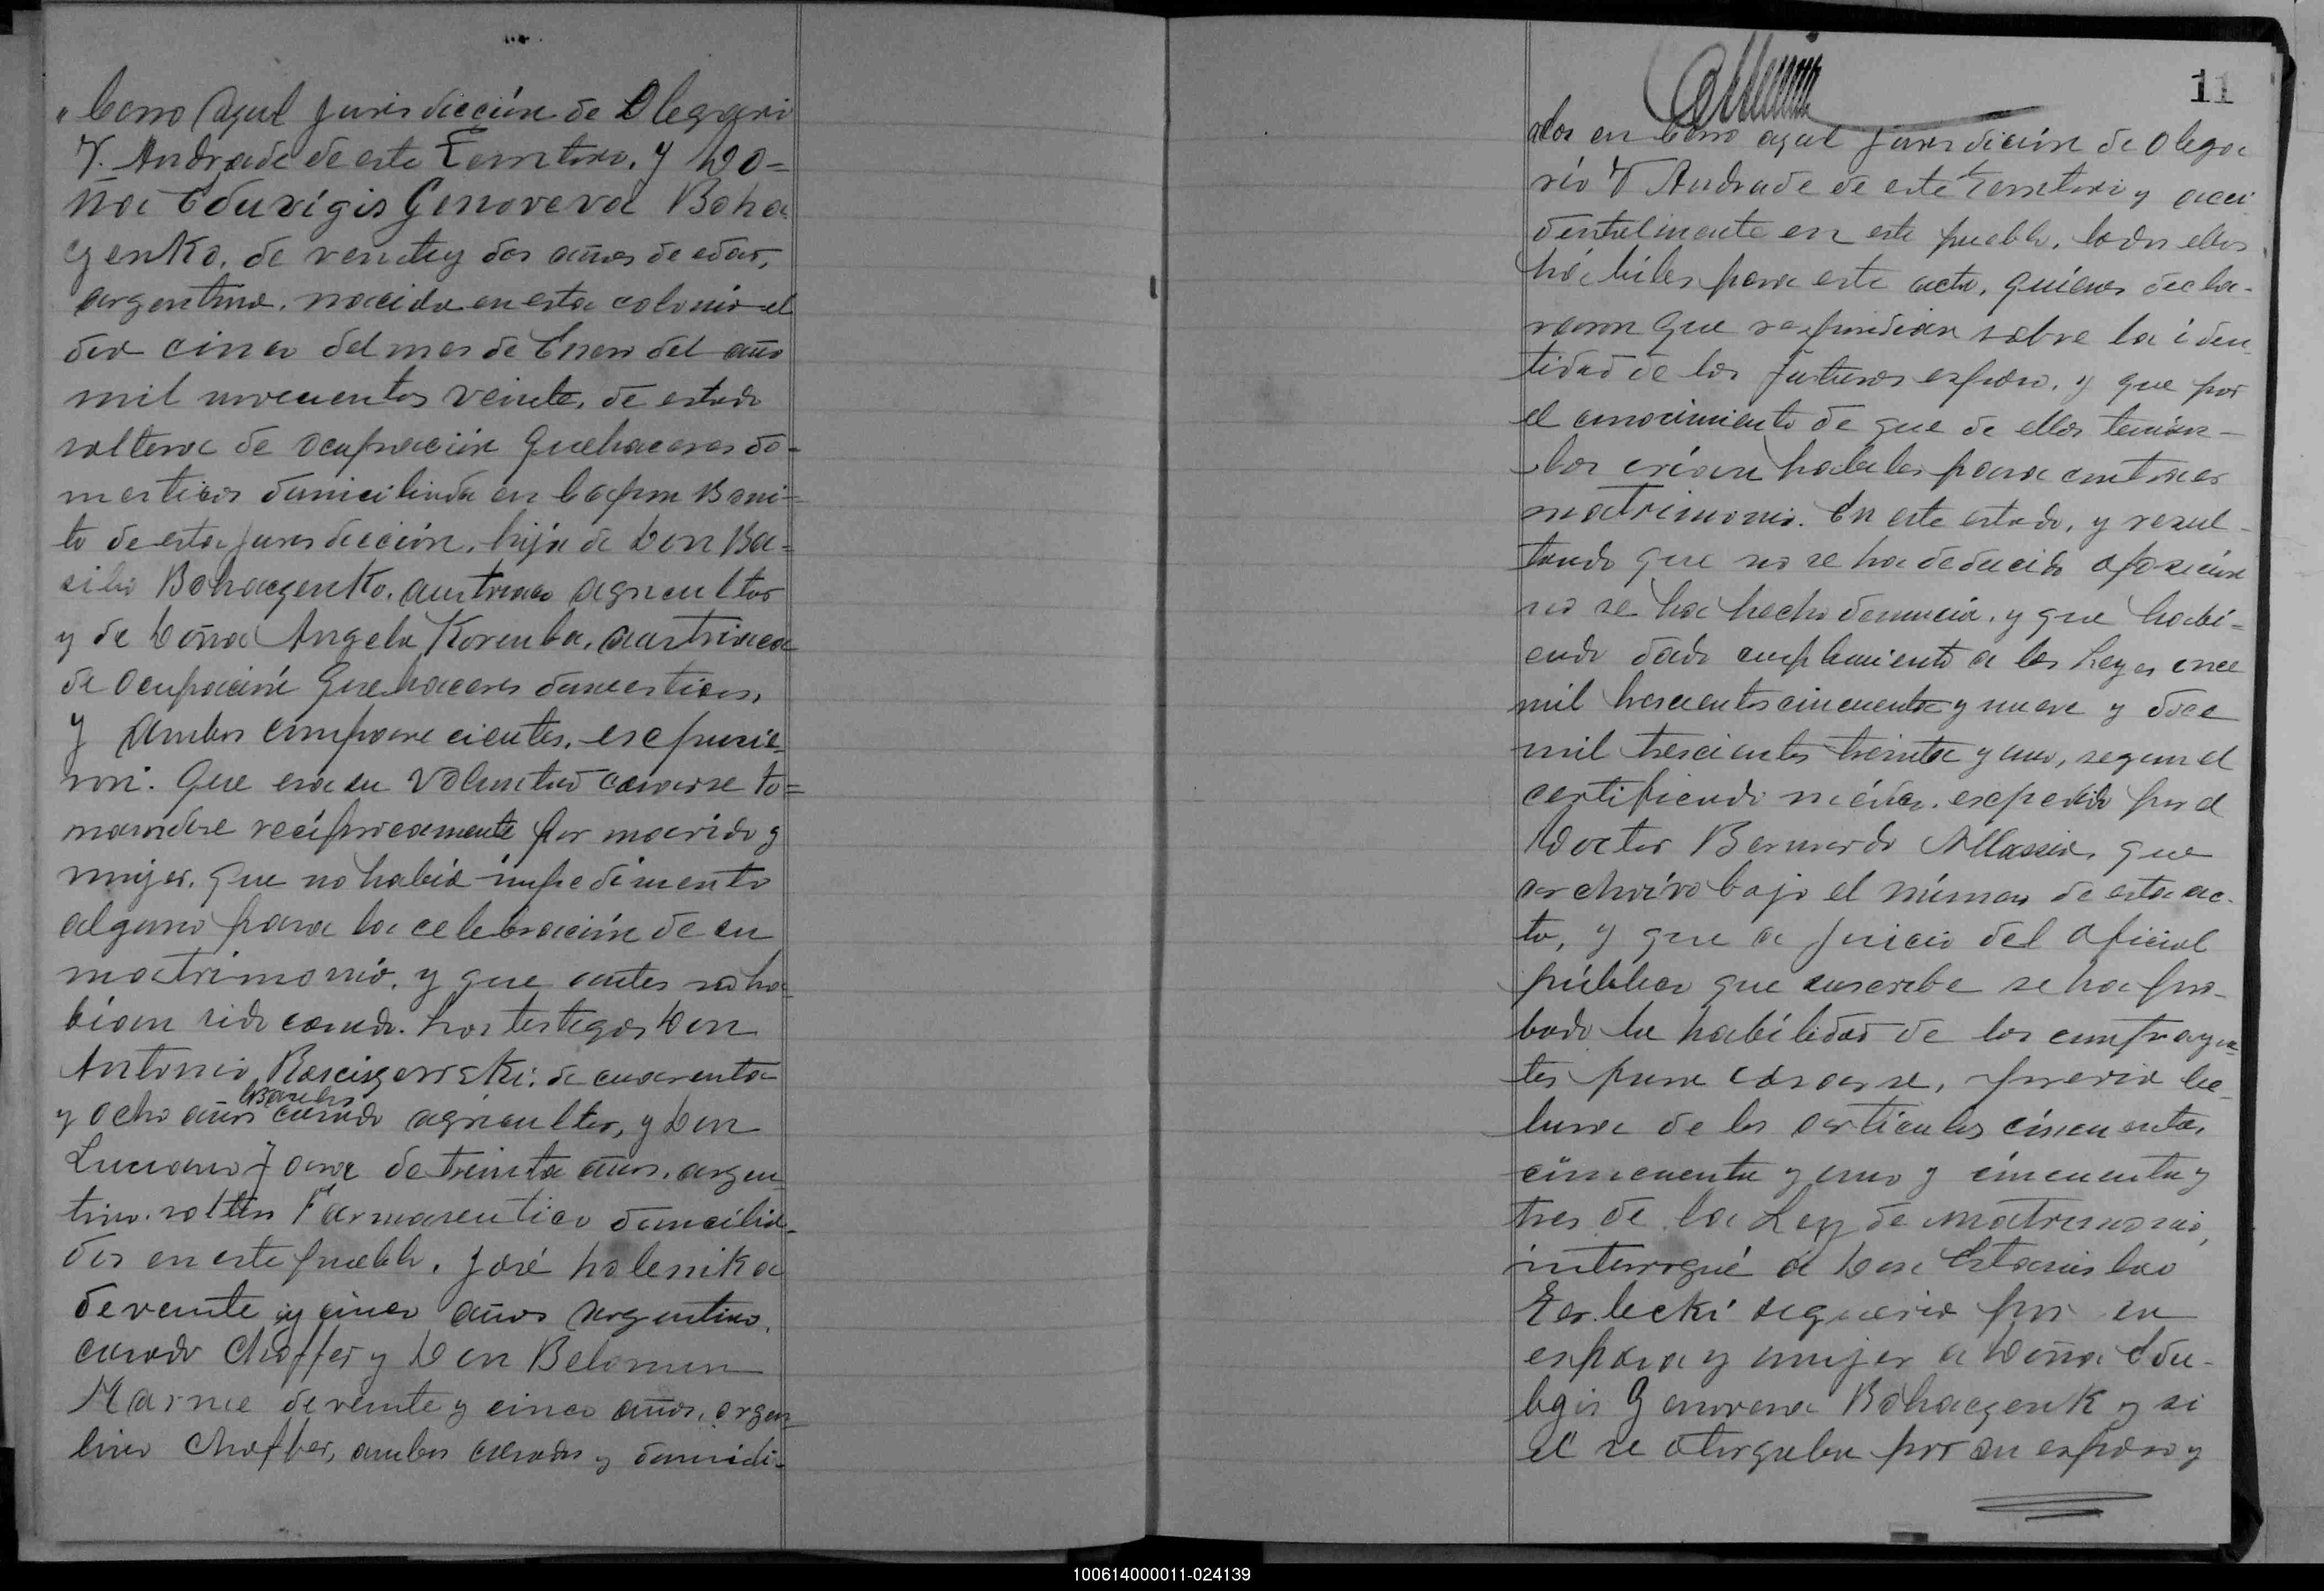 " Cerro Azul jurisdicción de Olegario
V. Andrade de este Territorio, y Do=
ña Eduvigis Genoveva Boha
czenko, de veinte y dos años de edad,
argentina, nacida en esta colonia el
dia cinco del mes de Enero del año
mil novecientos veinte, de estado
soltera de ocupación quehaceres do-
mesticos domiciliada en Campo Boni=
to de esta jurisdicción, hija de Don Ba=
silio Bohaczenko, austriaco agricultor
y de Doña Angela Koremba, austriaca
de ocupación Quehaceres domesticos,
y ambos comparecientes, expusie=
ron: Que era su voluntad casarse to=
mandose recíprocamente por marido y
mujer, que no había impedimento
alguno para la celebración de su
matrimonio, y que antes no ha=
bian sido casado. Los testigos Don
Antonio de cuarenta
y ocho años casado agricultor, y Don
Luciano de treinta años, argen
tino, soltero Farmaseutico domicilia-
dos en este pueblo, José Holenika
de veinte y cinco años argentino,
casado Choffer y Don Belomen
Marne de veinte y cinco años, argen
tino Choffer, ambos casados y domicili-
11
ados en Cerro Azul jurisdicion de Olega
rio V Andrade de este Territorio y acci
dentalmente en este pueblo, todos ellos
hábiles para este acto, quienes decla-
raron que respondian sobre la iden
tidad de los futuros esposo, y que por
el conocimiento de que de ellos tenian-
los crían habiles para contraer
matrimonio. En este estado, y resul-
tando que no se ha deducido oposición
no se ha hecho denuncia, y que habi=
endo dado cumplimiento a las Leyes once
mil trescientos cincuenta y nueve y doce
mil trescientos treinta y uno, segun el
certificado médico expedido por el
Doctor Bernardo que
archivo bajo el número de esta ac-
ta, y que a juicio del oficial
público que suscribe se ha pro-
bado la habilidad de los contrayen
tes para casarse, previa lec
tura de los articulos cincuenta,
cincuenta y uno y cincuenta y
tres de la Ley de matrimonio,
interrogué a Don Estanislao
Zerlecki si queria por su
esposa y mujer a Doña Edu-
bgis Genoveva Bohaczenk y si
el se otorgaba por su esposo y
100614000011-024139